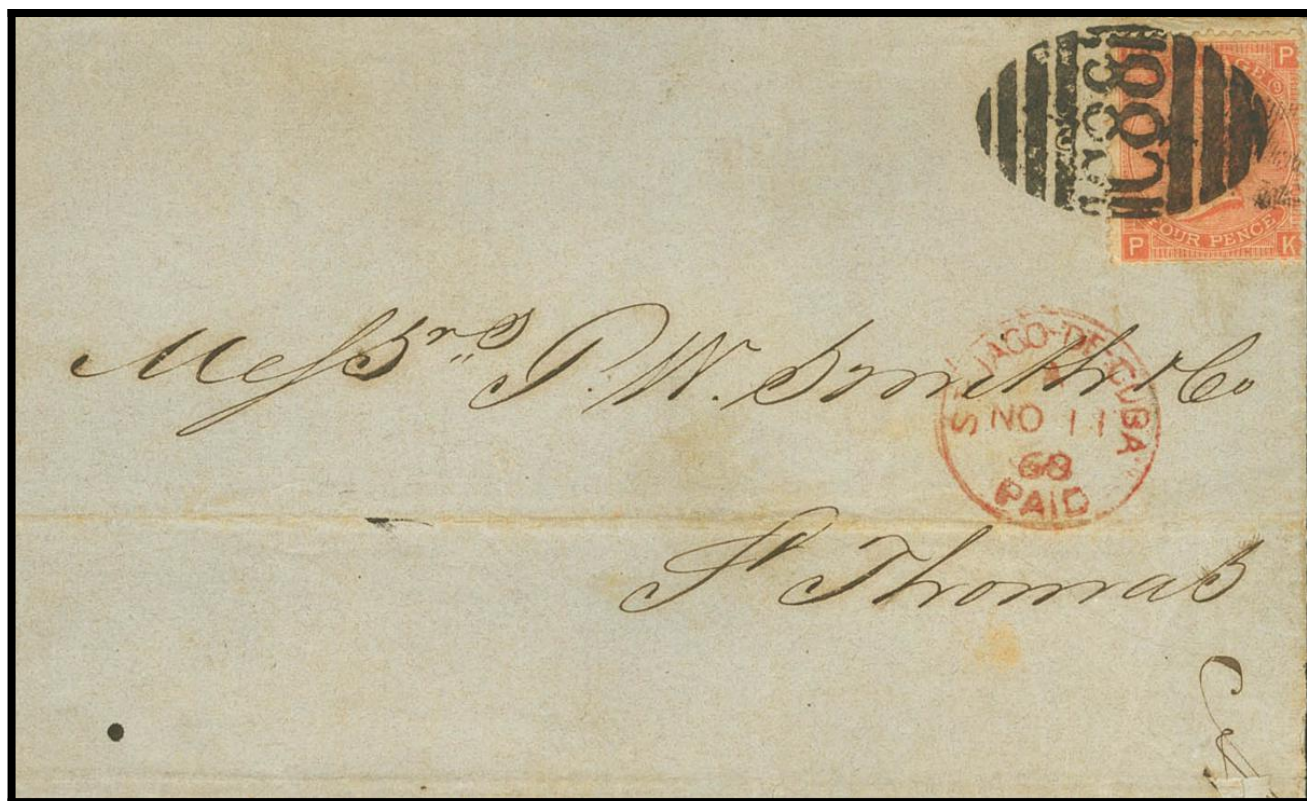 C88
P
9
FOUR PENCE
P K
Messrs P. W. Smith & Co
ST JAGO-DE-CUBA
A
NO 11
68
PAID
St Thomas